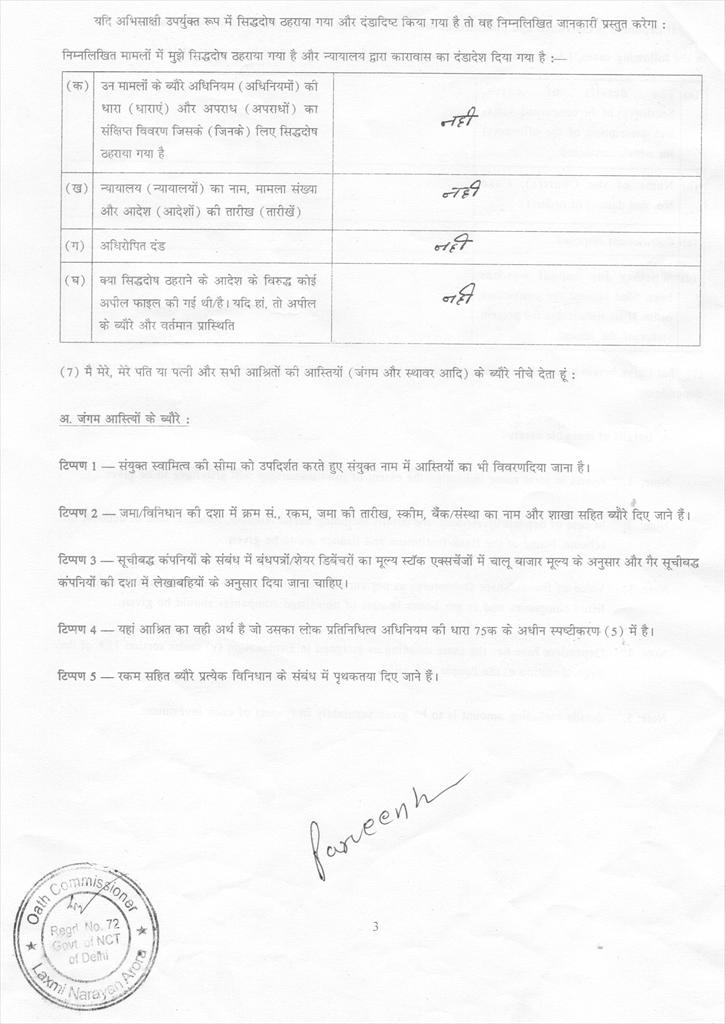 यदि अभिसाक्षी उपर्युक्त रूप में सिद्धदोष ठहराया गया और दंडादिष्ट किया गया है तो वह निम्नलिखित जानकारी प्रस्तुत करेगा :
निम्नलिखित मामलों में मुझे सिद्धदोष ठहराया गया है और न्यायालय द्वारा कारावास का दंडादेश दिया गया है :—
(क) उन मामलों के ब्यौरे अधिनियम (अधिनियमों) की
धारा (धाराएं) और अपराध (अपराधों) का
संक्षिप्त विवरण जिसके (जिनके) लिए सिद्धदोष
ठहराया गया है
नही
(ख) न्यायालय (न्यायालयों) का नाम, मामला संख्या
और आदेश (आदेशों) की तारीख (तारीखें)
नही
(ग) अधिरोपित दंड
नही
(घ) क्या सिद्धदोष ठहराने के आदेश के विरुद्ध कोई
अपील फाइल की गई थी/है। यदि हां, तो अपील
के ब्यौरे और वर्तमान प्रास्थिति
नही
(7) मै मेरे, मेरे पति या पत्नी और सभी आश्रितों की आस्तियों (जंगम और स्थावर आदि) के ब्यौरे नीचे देता हूं :
अ. जंगम आस्त्यिों के ब्यौरे :
टिप्पण 1 — संयुक्त स्वामित्व की सीमा को उपदर्शित करते हुए संयुक्त नाम में आस्तियों का भी विवरणदिया जाना है।
टिप्पण 2 — जमा/विनिधान की दशा में क्रम सं., रकम, जमा की तारीख, स्कीम, बैंक/संस्था का नाम और शाखा सहित ब्यौरे दिए जाने हैं।
टिप्पण 3 — सूचीबद्ध कंपनियों के संबंध में बंधपत्रों/शेयर डिबेंचरों का मूल्य स्टॉक एक्सचेंजों में चालू बाजार मूल्य के अनुसार और गैर सूचीबद्ध
कंपनियों की दशा में लेखाबहियों के अनुसार दिया जाना चाहिए।
टिप्पण 4 — यहां आश्रित का वही अर्थ है जो उसका लोक प्रतिनिधित्व अधिनियम की धारा 75क के अधीन स्पष्टीकरण (5) में है।
टिप्पण 5 — रकम सहित ब्यौरे प्रत्येक विनिधान के संबंध में पृथकतया दिए जाने हैं।
Oath Commissioner
Regd. No. 72
Govt. of NCT
of Delhi
Laxmi Narayan Arora
3